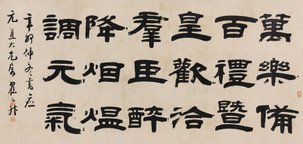 萬樂備
百禮暨
皇歡洽
羣臣醉
降烟熅
調元氣
辛卯仲冬書應
元直大兄屬